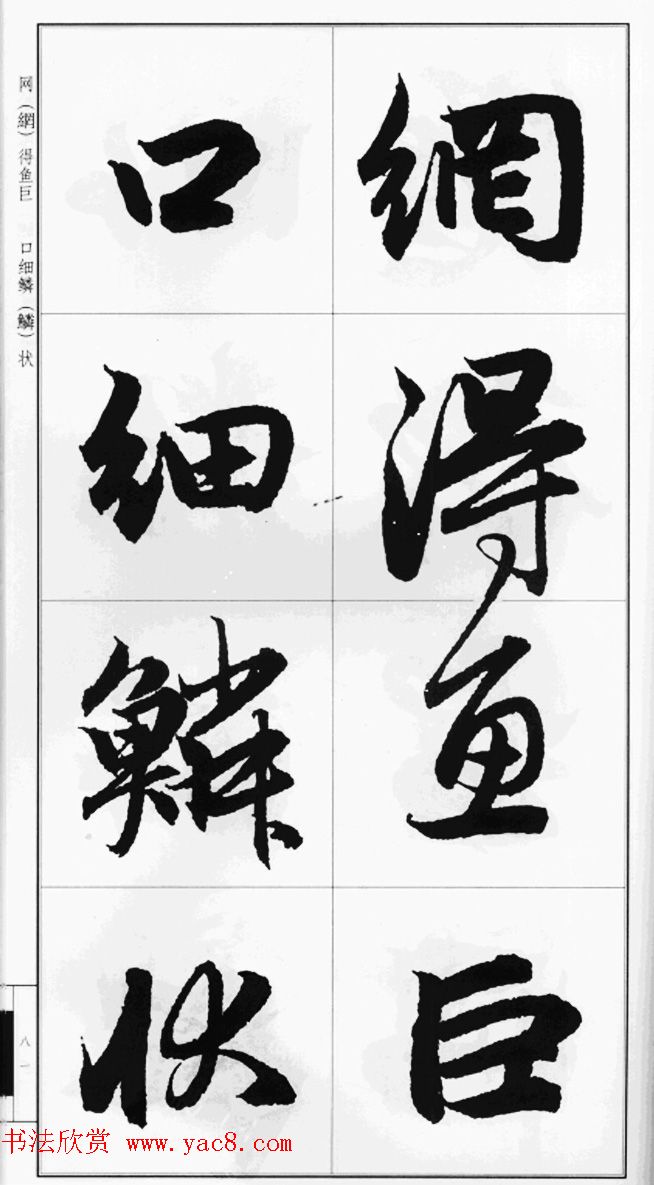 網得魚巨
口細鱗狀
网（網）得鱼巨　口细鳞（鱗）状
八一
书法欣赏 www.yac8.com